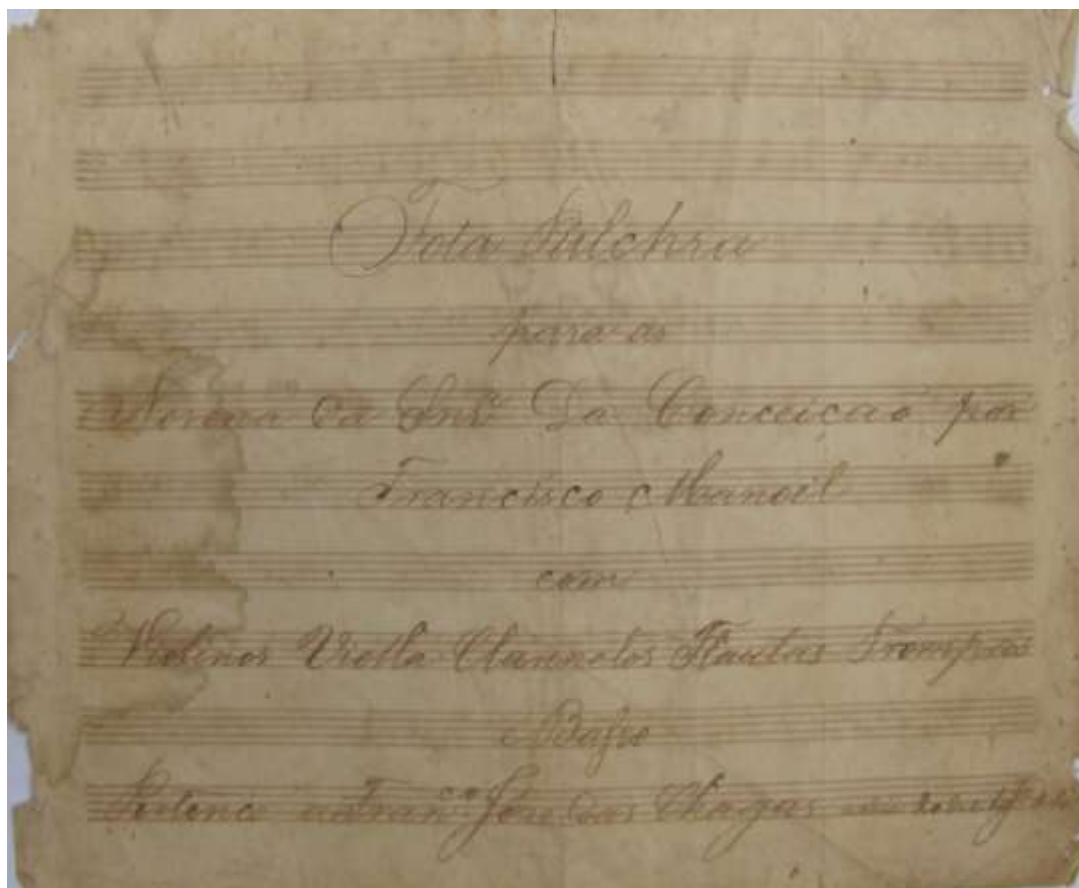 Tota Pulchra
para as
Novena Da Snrª Da Conceicaõ por
Francisco Manoel
com
Violinos Viella Clarinetos Flautas Trompas
Basso
Pertence Franco José das Chagas